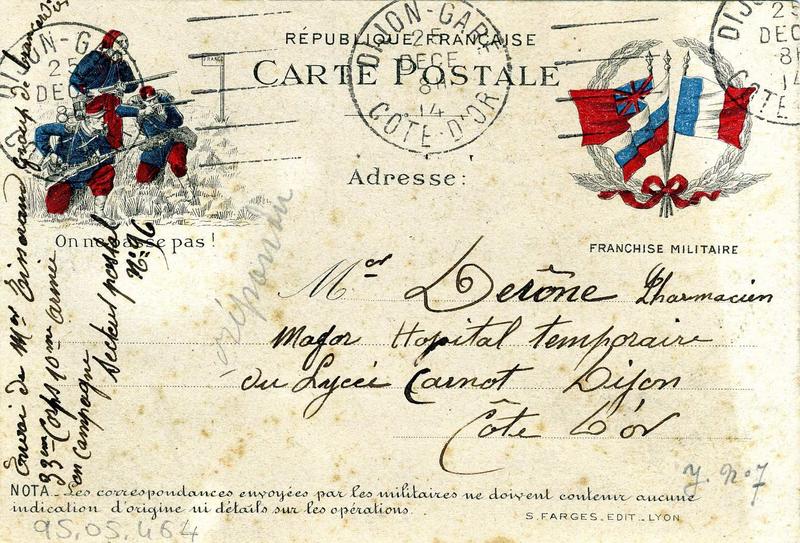 RÉPUBLIQUE FRANÇAISE
CARTE POSTALE
DIJON-GARE
25
DECE
8H
14
CÔTE-D'OR
DIJON-GARE
25
DEC
8
DIJ
25
DEC
8H
14
CÔTE
Adresse:
On ne passe pas!
FRANCHISE MILITAIRE
répondu
Mor Derône Pharmacien
Major Hopital temporaire
du Lycée Carnot Dijon
Côte d'or
Envoi de Mor Groupe de
33em Corps 10me armée
en campagne
Secteur postal
No 96
Y. No 7
NOTA_Les correspondances envoyées par les militaires ne doivent contenir aucune
indication d'origine ni détails sur les opérations.
S. FARGES_EDIT_LYON
95.05.464